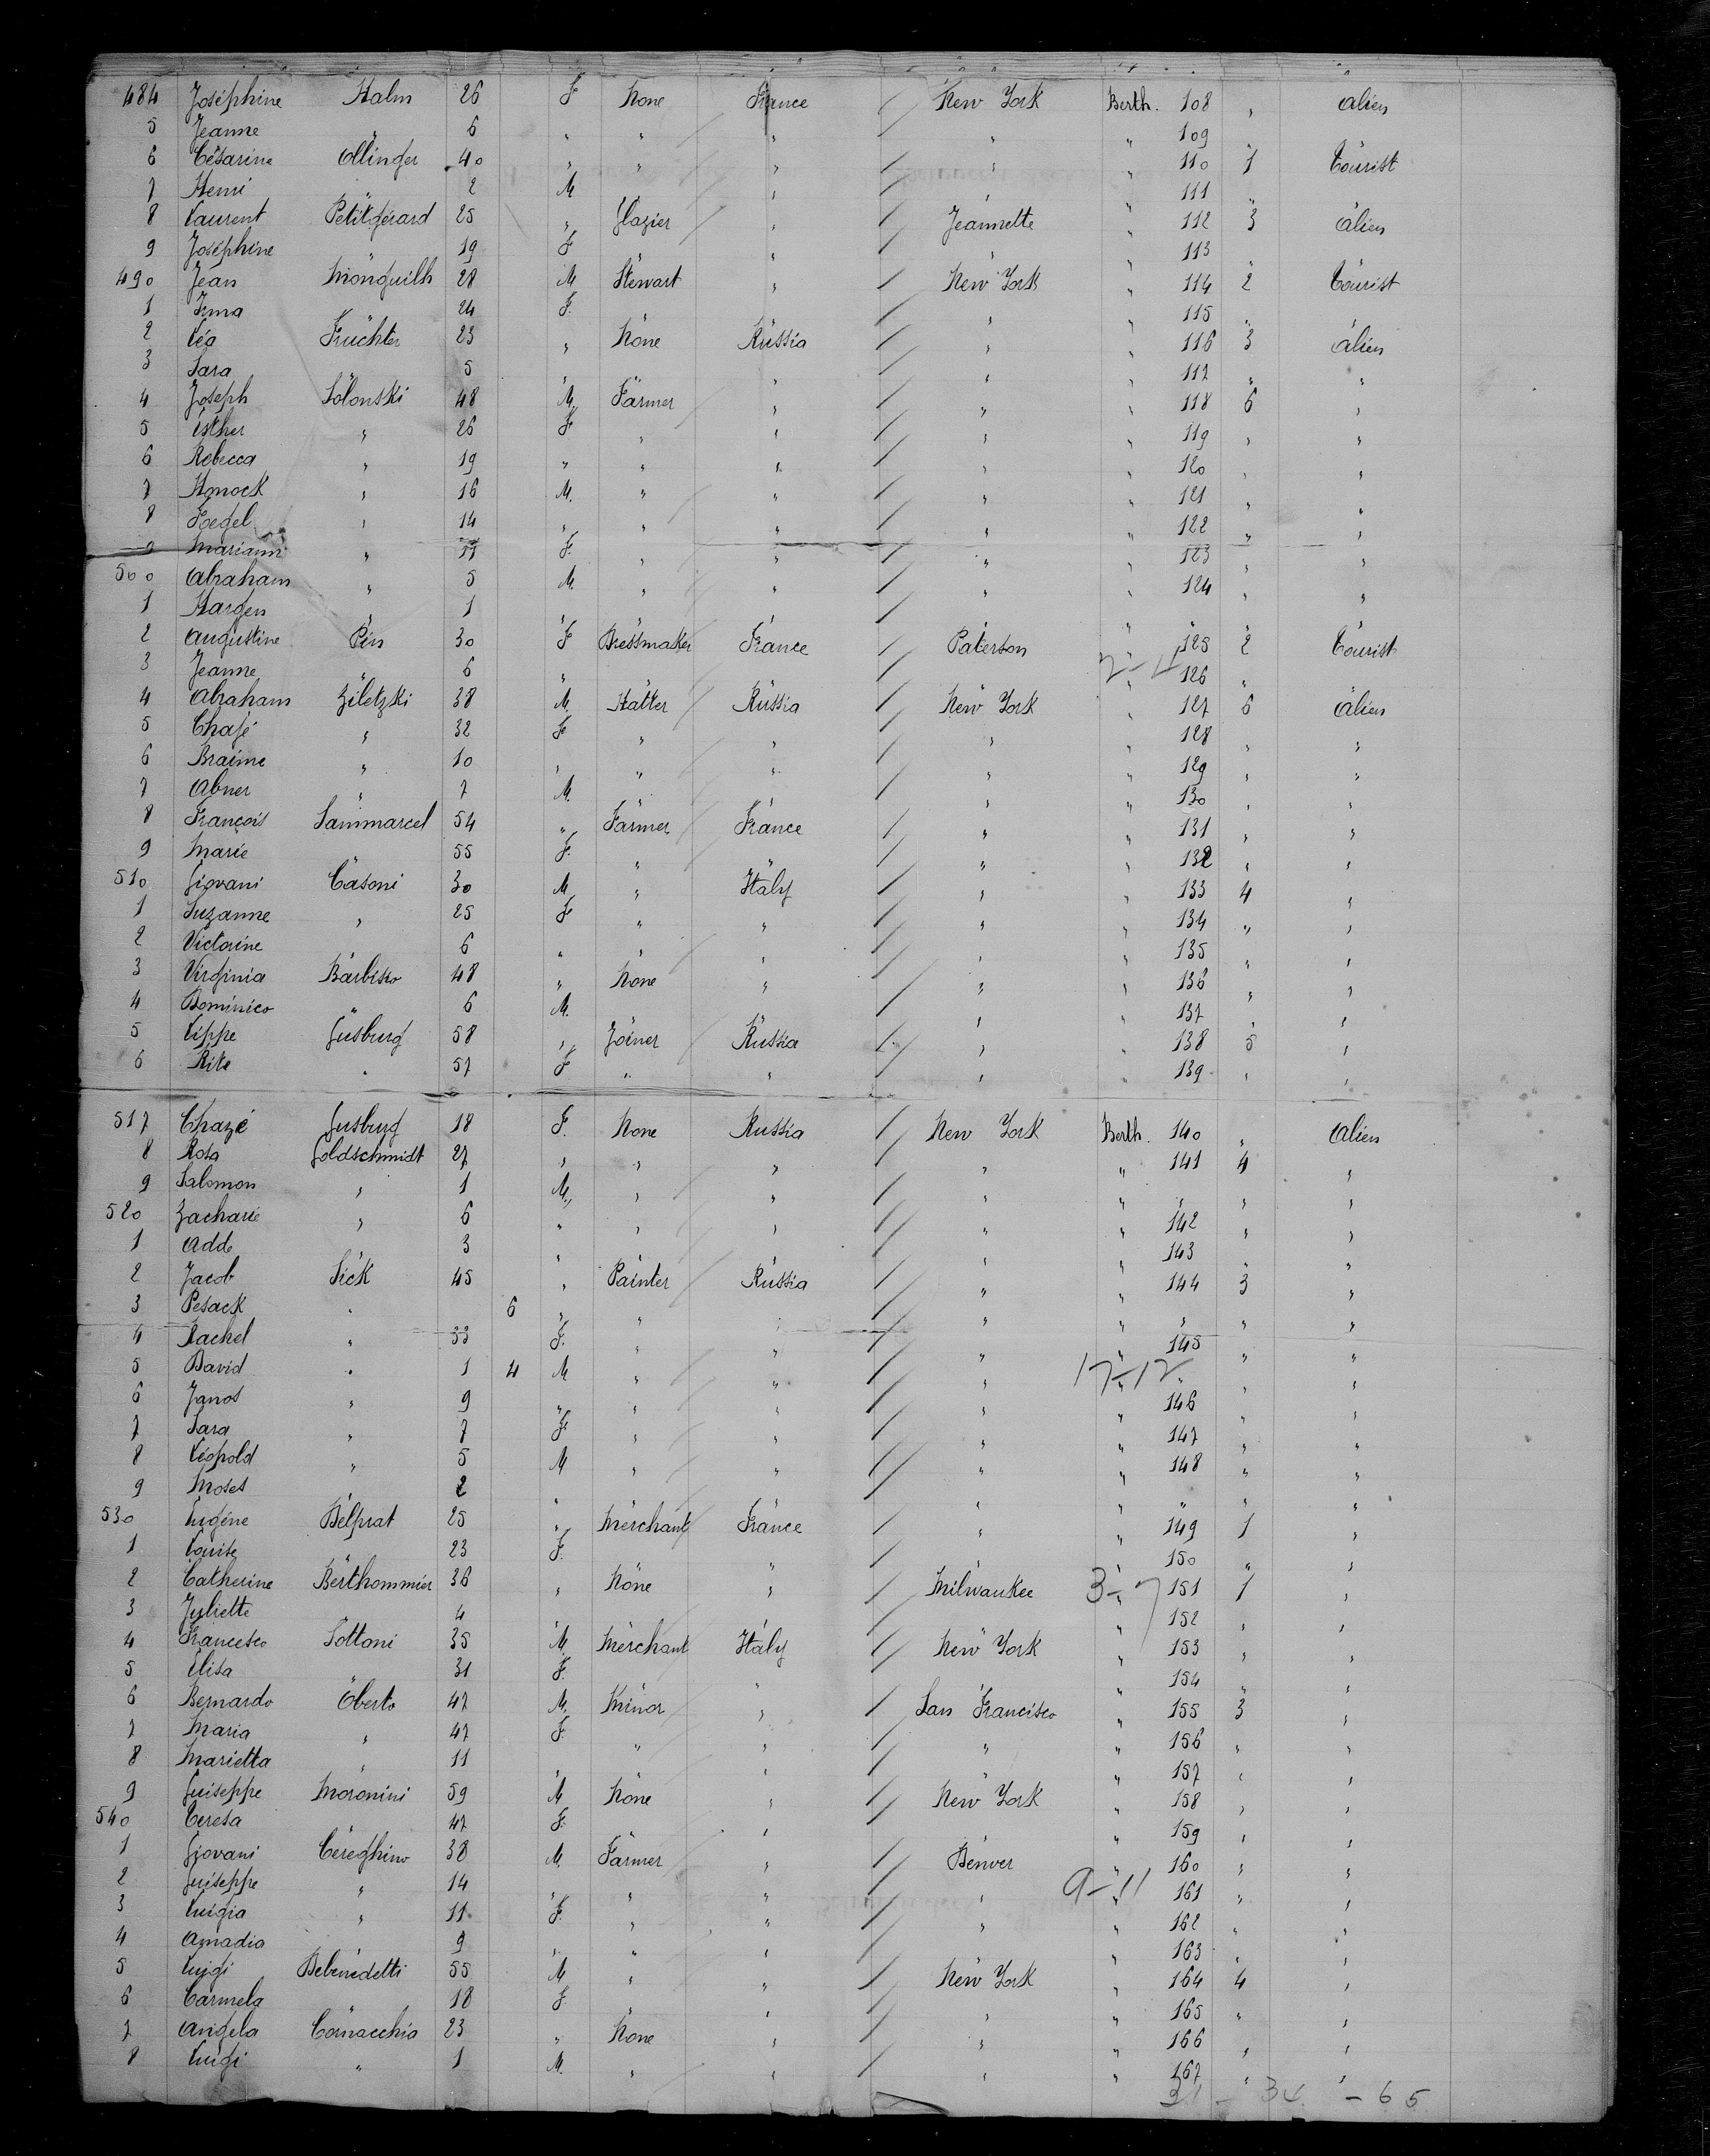 484 Joséphine Halm 26 F None France / New York Berth. 108 " Alien
5 Jeanne " 6 " " " / " " 109 " "
6 Césarine Ollinger 40 " " " / " " 110 1 Tourist
7 Henri " 2 M " " / " " 111 " "
8 Laurent Petitgérard 25 " Glazier " / Jeannette " 112 3 Alien
9 Joséphine " 19 F " " / " " 113 " "
490 Jean Monguilh 28 M Stewart " / New York " 114 2 Tourist
1 Irma " 24 F. " " / " " 115 " "
2 Léa Fruchter 23 " None Russia / " " 116 3 Alien
3 Sara " 5 " " " / " " 117 " "
4 Joseph Solonski 48 M. Farmer " / " " 118 6 "
5 Esther " 26 F " " / " " 119 " "
6 Rebecca " 19 " " " / " " 120 " "
7 Honock " 16 M. " " / " " 121 " "
8 Foegel " 14 " " " / " " 122 " "
9 Mariam " 11 F. " " / " " 123 " "
500 Abraham " 5 M. " " / " " 124 " "
1 Hargen " 1 " " " / " " " " "
2 Augustine Pin 30 F Dressmaker France / Paterson " 125 2 Tourist
3 Jeanne " 6 " " " / " " 126 " "
4 Abraham Ziletzki 38 M. Hatter Russia / New York " 127 6 Alien
5 Chafé " 32 F " " / " " 128 " "
6 Braime " 10 " " " / " " 129 " "
7 Abner " 7 M. " " / " " 130 " "
8 François Sammarcel 54 " Farmer France / " " 131 " "
9 Marie " 55 F. " " / " " 132 " "
510 Giovani Casoni 30 M. " Italy / " " 133 4 "
1 Suzanne " 25 F " " / " " 134 " "
2 Victorine " 6 " " " / " " 135 " "
3 Virginia Barbisio 48 " None " / " " 136 " "
4 Dominico " 6 M. " " / " " 137 " "
5 Lippe Gusburg 58 " Joiner Russia / " " 138 5 "
6 Rite " 57 F " " / " " 139 " "
517 Chazé Gusburg 18 F. None Russia / New York Berth. 140 " Alien
8 Rosa Goldschmidt 27 " " " / " " 141 4 "
9 Salomon " 1 M. " " / " " " " "
520 Zacharie " 6 " " " / " " 142 " "
1 Adde " 3 " " " / " " 143 " "
2 Jacob Sick 45 " Painter Russia / " " 144 3 "
3 Pesack " 6 " " " / " " " " "
4 Rachel " 33 F. " " / " " 145 " "
5 David " 1 4 M " " / " 17-12 " " " "
6 Janos " 9 " " " / " " 146 " "
7 Sara " 7 F " " / " " 147 " "
8 Léopold " 5 M " " / " " 148 " "
9 Moses " 2 " " " / " " " " "
530 Eugène Delprat 25 " Merchant France / " " 149 1 "
1 Louise " 23 F. " " / " " 150 " "
2 Catherine Berthommier 36 " None " / Milwaukee 3-7 " 151 1 "
3 Juliette " 4 " " " / " " 152 " "
4 Francesco Sottoni 35 M. Merchant Italy / New York " 153 " "
5 Elisa " 31 F. " " / " " 154 " "
6 Bernardo Oberto 47 M. Minor " / San Francisco " 155 3 "
7 Maria " 47 F. " " / " " 156 " "
8 Marietta " 11 " " " / " " 157 " "
9 Guiseppe Moronini 59 M None " / New York " 158 " "
540 Teresa " 47 F. " " / " " 159 " "
1 Giovani Cereghino 38 M. Farmer " / Denver " 160 " "
2 Guiseppe " 14 " " " / " 9-11 " 161 " "
3 Luigia " 11 F. " " / " " 162 " "
4 Amadia " 9 " " " / " " 163 " "
5 Luigi Debenedetti 55 M " " / New York " 164 4 "
6 Carmela " 18 F " " / " " 165 " "
7 Angela Cornacchia 23 " None " / " " 166 " "
8 Luigi " 1 M. " " / " " 167 " "
31 - 34 - 65